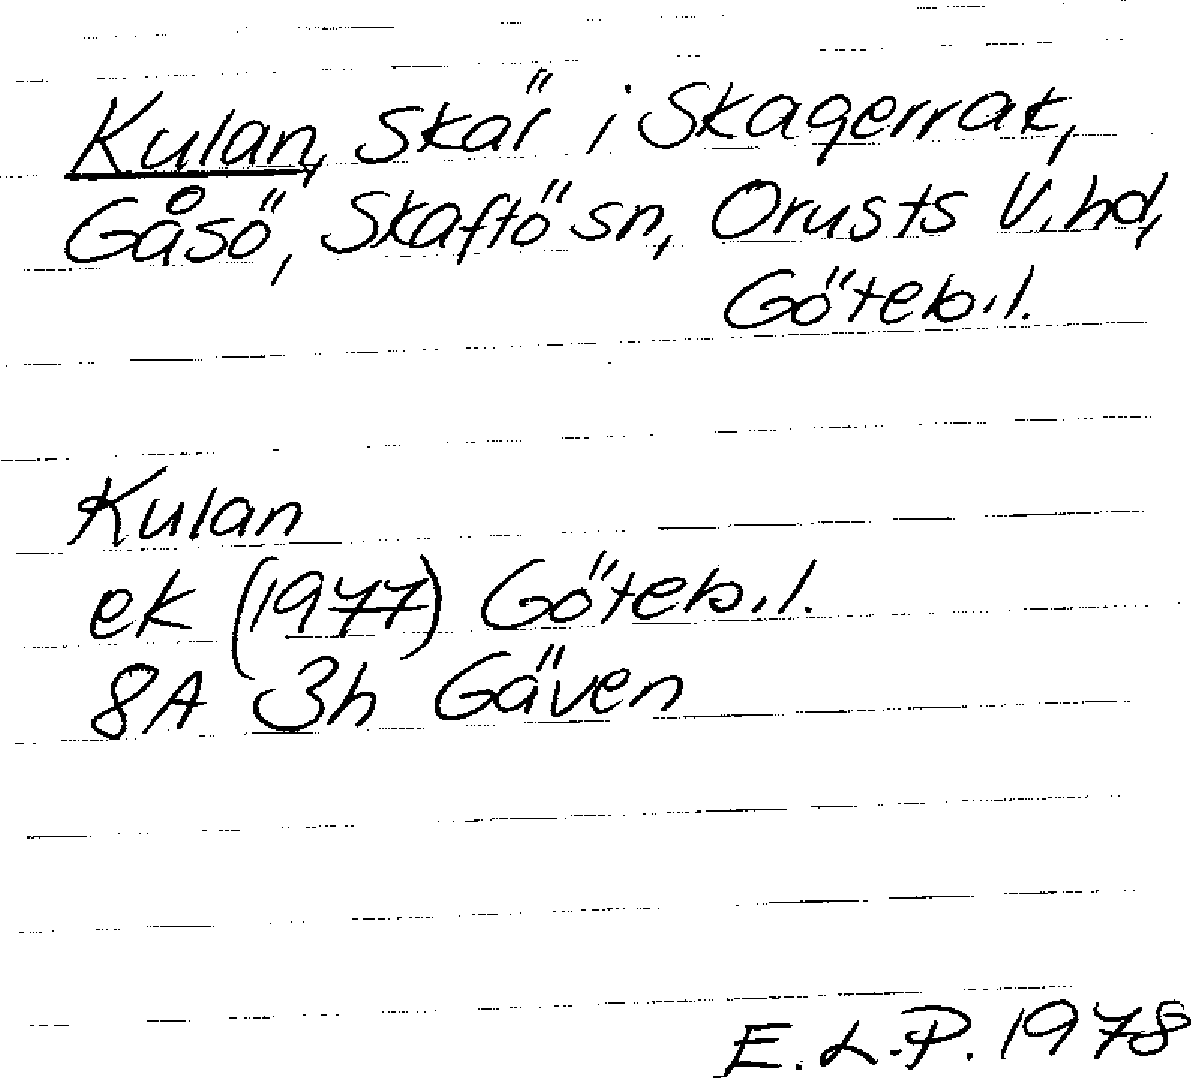 Kulan, skär i Skagerrak,
Gåsö, Skaftö sn, Orusts V. hd,
Göteb. l.
Kulan
ek (1977) Göteb. l.
8A 3h Gäven
E. L. P. 1978